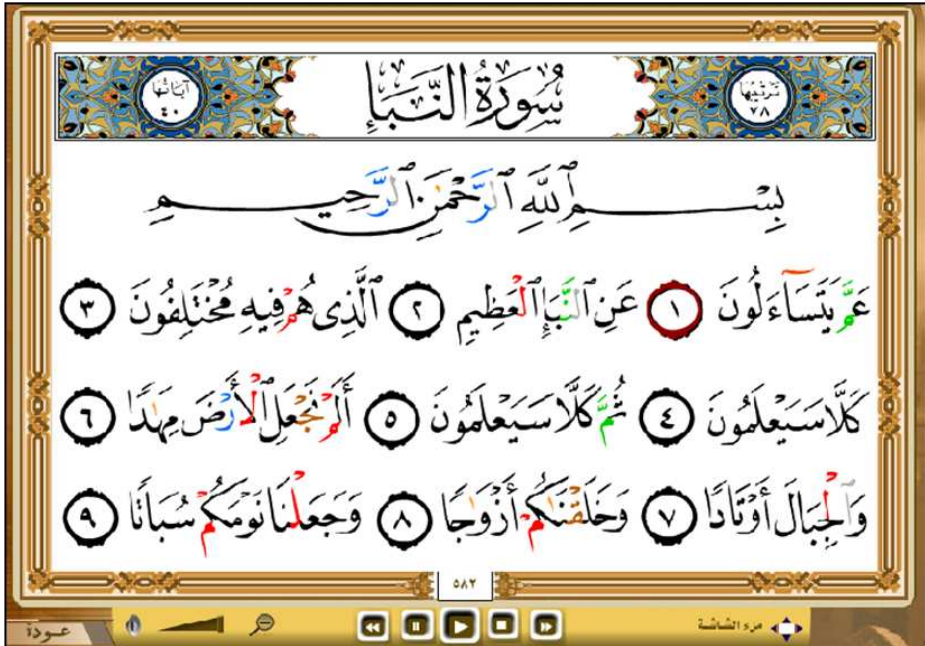 ترتيبها ٧٨
سُورَةُ النَّبَإِ
آياتها ٤٠
بِسْمِ ٱللَّهِ ٱلرَّحْمَٰنِ ٱلرَّحِيمِ
عَمَّ يَتَسَآءَلُونَ ١ عَنِ ٱلنَّبَإِ ٱلْعَظِيمِ ٢ ٱلَّذِى هُمْ فِيهِ مُخْتَلِفُونَ ٣
كَلَّا سَيَعْلَمُونَ ٤ ثُمَّ كَلَّا سَيَعْلَمُونَ ٥ أَلَمْ نَجْعَلِ ٱلْأَرْضَ مِهَٰدًا ٦
وَٱلْجِبَالَ أَوْتَادًا ٧ وَخَلَقْنَٰكُمْ أَزْوَٰجًا ٨ وَجَعَلْنَا نَوْمَكُمْ سُبَاتًا ٩
٥٨٢
عودة
ملء الشاشة